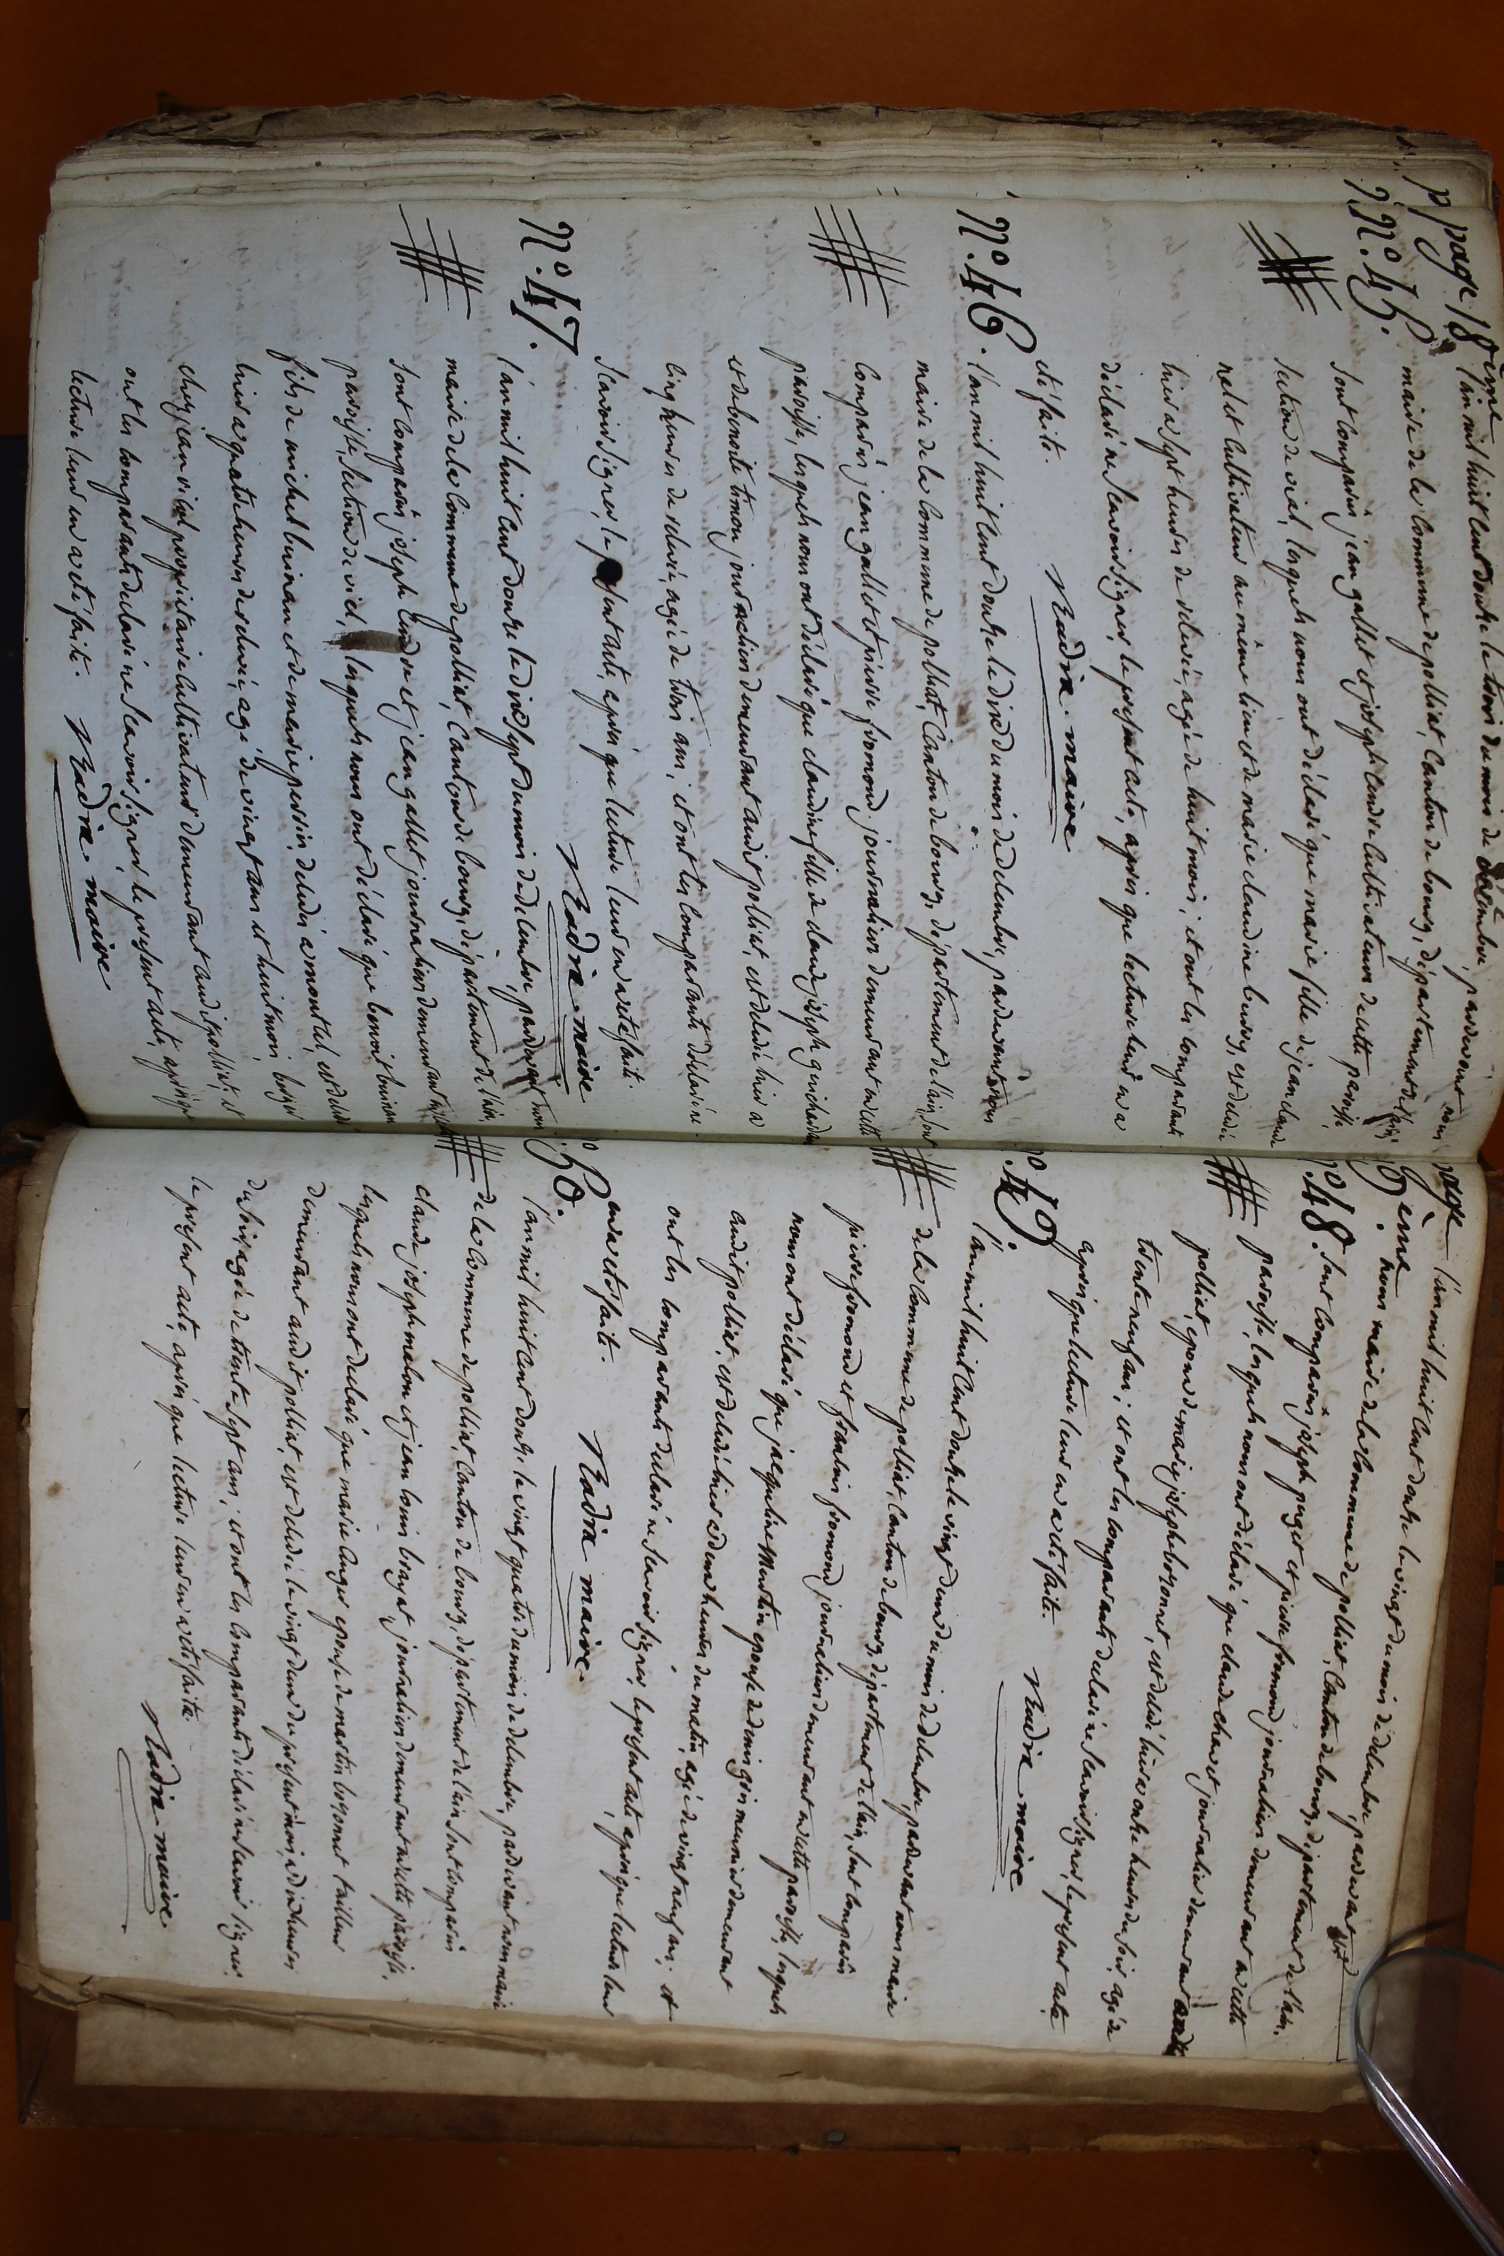 page 18ème
N.º 45.
l'an mil huit cent douze le trois du mois de décembre, pardevant nous
maire de la commune de polliat, canton de bourg, département de l'ain,
sont comparus jean gallet et joseph cultivateurs de cette paroisse,
section de viel, lesquels nous ont déclaré que marie fille de jean claude
et cultivateur au même lieu et de marie claudine buvy, est décédée
hier a sept heures de relevée, agée de huit mois; et ont les comparants
déclaré ne scavoir signer, le présent acte, après que lecture leur en a
été faite.
Nadre maire
N.º 46.
l'an mil huit cent douze le dix du mois de décembre, pardevant nous
maire de la commune de polliat, canton de bourg, département de l'ain, sont
comparus jean gallet et pierre fromond journaliers demeurant en cette
paroisse, lesquels nous ont déclaré que claudine fille de claude joseph
et de benoite timon journaliers demeurant audit polliat, est décédée hier a
cinq heures de relevée, agée de trois ans, et ont les comparants déclaré ne
scavoir signer, le présent acte, après que lecture leur en a été faite.
Nadre maire
N.º 47.
l'an mil huit cent douze le dix sept du mois de décembre, pardevant nous
maire de la commune de polliat, canton de bourg, département de l'ain,
sont comparus joseph et jean gallet journaliers demeurant en cette
paroisse, section de viel, lesquels nous ont déclaré que benoit
fils de michel et de marie perrin, décédés a montcet, est décédé
hier a quatre heures de relevée, agé de vingt ans et huit mois,
chez jean vial propriétaire cultivateur demeurant audit polliat; et
ont les comparants déclaré ne scavoir signer, le présent acte, après que
lecture leur en a été faite.
Nadre maire
page
19ème
N.º 48.
l'an mil huit cent douze le vingt du mois de décembre, pardevant
nous maire de la commune de polliat, canton de bourg, département de l'ain,
sont comparus joseph puget et pierre fromond journaliers demeurant en cette
paroisse, lesquels nous ont déclaré que claude chanet journalier demeurant audit
polliat, epoux de marie josephe bozonnet, est décédé hier a onze heures du soir, agé de
trente neuf ans; et ont les comparants déclaré ne scavoir signer, le présent acte
après que lecture leur en a été faite.
Nadre maire
N.º 49.
l'an mil huit cent douze le vingt deux du mois de décembre, pardevant nous maire
de la commune de polliat, canton de bourg, département de l'ain, sont comparus
pierre fromond et francois fromond journaliers demeurant en cette paroisse, lesquels
nous ont déclaré que jacqueline epouse de denis meunier demeurant
audit polliat, est décédée hier a deux heures du matin, agée de vingt neuf ans; et
ont les comparants déclaré ne scavoir signer, le présent acte, après que lecture leur
en a été faite.
Nadre maire.
N.º 50.
l'an mil huit cent douze le vingt quatre du mois de décembre, pardevant nous maire
de la commune de polliat, canton de bourg, département de l'ain, sont comparus
claude joseph et jean louis journaliers demeurant en cette paroisse,
lesquels nous ont déclaré que marie epouse de martin bozonnet tailleur
demeurant audit polliat, est décédée le vingt deux du présent mois, a dix heures
du soir, agée de trente sept ans; et ont les comparants déclaré ne scavoir signer
le présent acte, après que lecture leur en a été faite.
Nadre maire